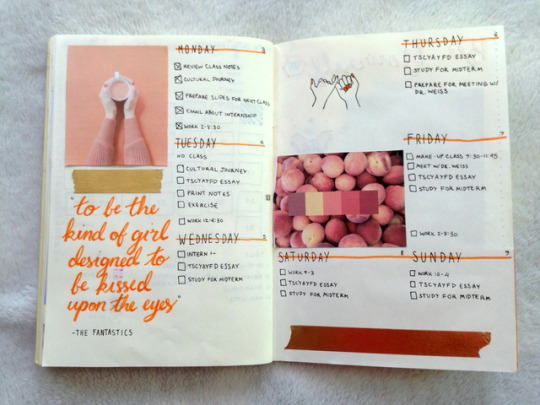 "to be the
kind of girl
designed to
be kissed
upon the eyes"
-THE FANTASTICS
MONDAY 3
REVIEW CLASS NOTES
CULTURAL JOURNEY
PREPARE SLIDES FOR NEXT CLASS
EMAIL ABOUT INTERNSHIP
WORK 2-8:30
TUESDAY
NO CLASS
CULTURAL JOURNEY
TSCYAYFD ESSAY
PRINT NOTES
EXERCISE
WORK 12-8:30
WEDNESDAY 5
INTERN
TSCYAYFD ESSAY
STUDY FOR MIDTERM
THURSDAY
TSCYAYFD ESSAY
STUDY FOR MIDTERM
PREPARE FOR MEETING W/
DR. WEISS
FRIDAY 7
MAKE-UP CLASS 9:30-11:45
MEET W/DR. WEISS
TSCYAYFD ESSAY
STUDY FOR MIDTERM
WORK 2-8:30
SATURDAY 8
WORK 9-3
TSCYAYFD ESSAY
STUDY FOR MIDTERM
SUNDAY 9
WORK 10-4
TSCYAYFD ESSAY
STUDY FOR MIDTERM